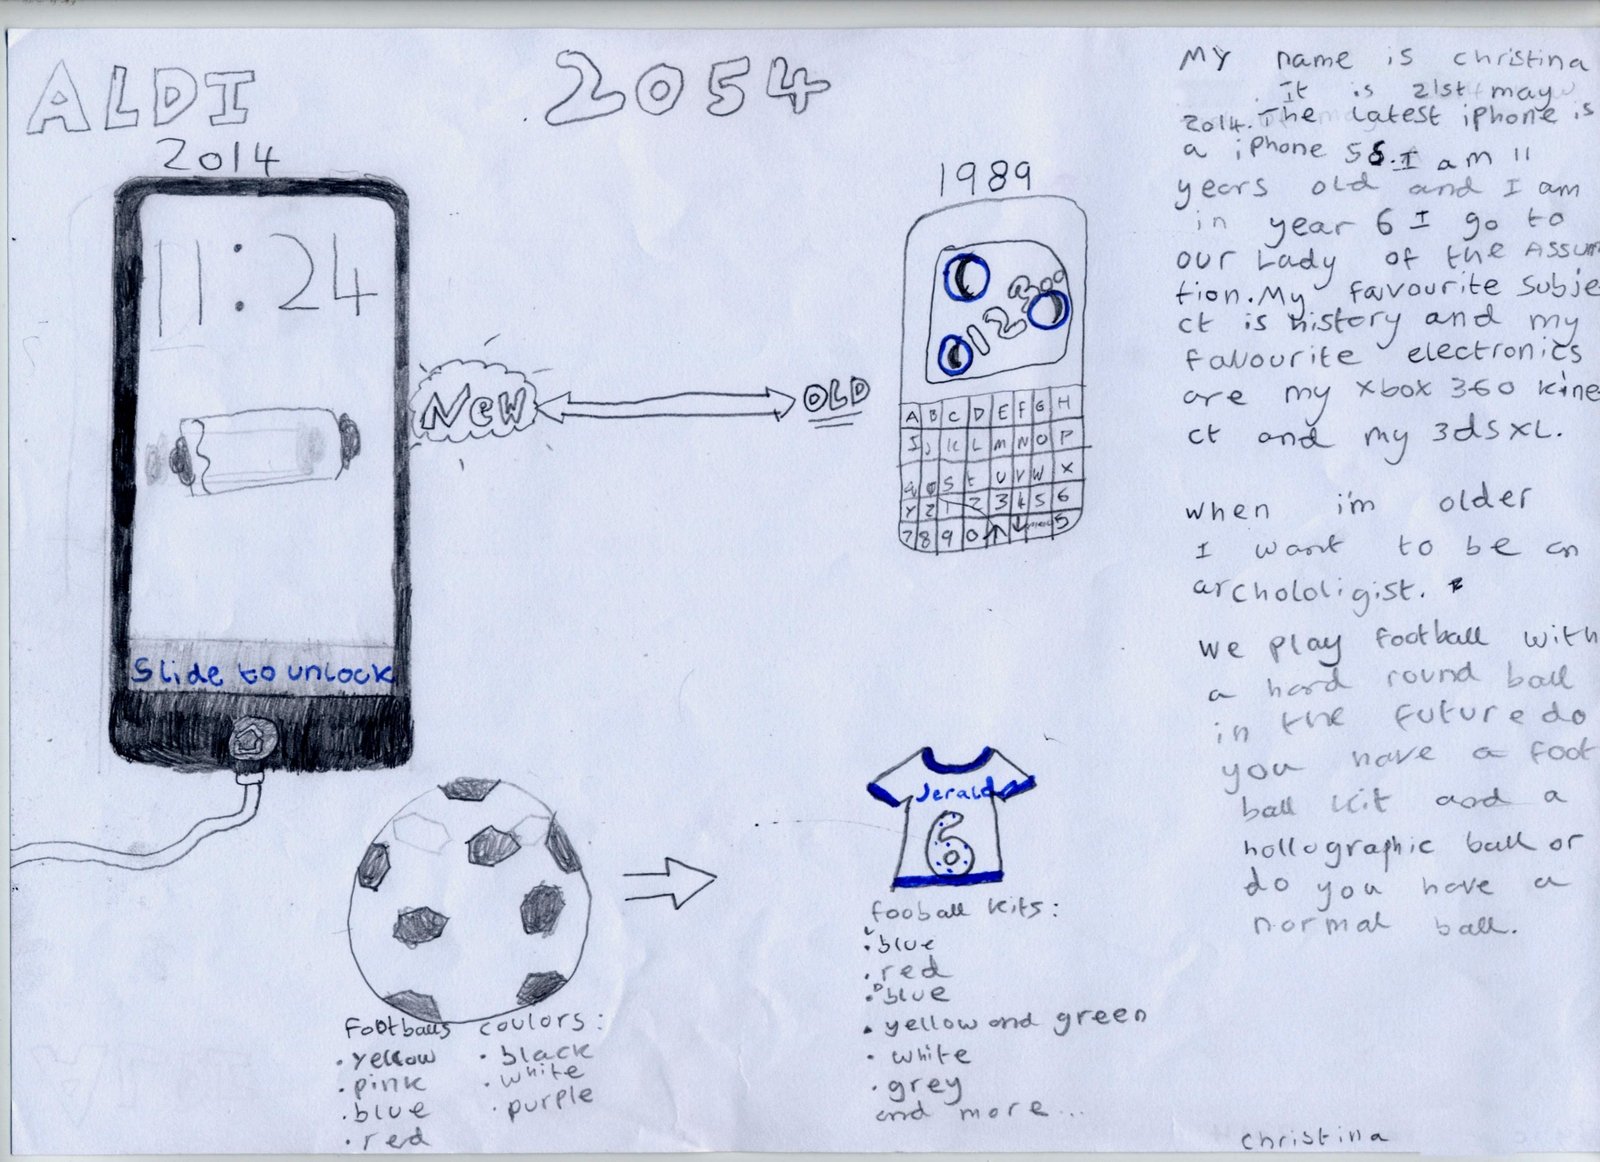 ALDI
2054
2014
11:24
Slide to unlock
New
OLD
1989
12
A B C D E F G H
I J K L M N O P
q S t U V W X
Y Z 1 2 3 4 5 6
7 8 9 0 ↑ ↓ 5
Footballs coulors:
• yellow
• pink
• blue
• red
• black
• white
• purple
Jerald
6
fooball kits:
• L blue
• red
• D blue
• yellow and green
• white
• grey
and more...
My name is christina
It is 21st may
2014. The latest iphone is
a iphone 5s. I am 11
years old and I am
in year 6 I go to
our Lady of the Assum
tion. My favourite Subje
ct is history and my
favourite electronics
are my xbox 360 kine
ct and my 3dSXL.
when i'm older
I want to be an
archololigist.
we play football with
a hard round ball
in the future do
you have a foot
ball kit and a
hollographic ball or
do you have a
normal ball.
christina